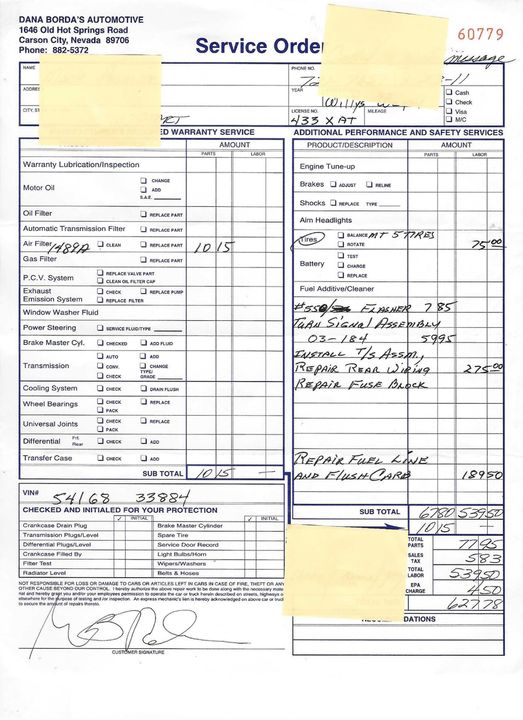 DANA BORDA'S AUTOMOTIVE
1646 Old Hot Springs Road
Carson City, Nevada 89706
Phone: 882-5372
Service Orde
60779
message
NAME
PHONE NO.
-11
ADDRES
YEAR
Willys
CITY, ST
LICENSE NO.
433 XAT
MILEAGE
Cash
Check
Visa
M/C
ED WARRANTY SERVICE
AMOUNT
PARTS LABOR
Warranty Lubrication/Inspection
Motor Oil CHANGE
ADD
S.A.E.
Oil Filter REPLACE PART
Automatic Transmission Filter REPLACE PART
Air Filter 1489A CLEAN REPLACE PART 10 15
Gas Filter REPLACE PART
P.C.V. System REPLACE VALVE PART
CLEAN OIL FILTER CAP
Exhaust CHECK REPLACE PUMP
Emission System REPLACE FILTER
Window Washer Fluid
Power Steering SERVICE FLUID/TYPE
Brake Master Cyl. CHECKED ADD FLUID
Transmission AUTO ADD
CONV. CHANGE
CHECK TYPE/GRADE
Cooling System CHECK DRAIN FLUSH
Wheel Bearings CHECK REPLACE
PACK
Universal Joints CHECK REPLACE
PACK
Differential Frt. Rear CHECK ADD
Transfer Case CHECK ADD
SUB TOTAL 10 15 —
ADDITIONAL PERFORMANCE AND SAFETY SERVICES
PRODUCT/DESCRIPTION AMOUNT
PARTS LABOR
Engine Tune-up
Brakes ADJUST RELINE
Shocks REPLACE TYPE
Aim Headlights
Tires BALANCE MT 5 TIRES
ROTATE 75 00
Battery TEST
CHARGE
REPLACE
Fuel Additive/Cleaner
#550 FLASHER 7 85
TURN SIGNAL ASSEMBLY
03-184 59 95
INSTALL T/S ASSM,
REPAIR REAR WIRING 275 00
REPAIR FUSE BLOCK
REPAIR FUEL LINE
AND FLUSH CARB 189 50
SUB TOTAL 67 80 539 50
10 15 —
TOTAL PARTS 77 95
SALES TAX 5 83
TOTAL LABOR 539 50
EPA CHARGE 4 50
627.78
DATIONS
VIN# 54168 33884
CHECKED AND INITIALED FOR YOUR PROTECTION
✓ INITIAL ✓ INITIAL
Crankcase Drain Plug Brake Master Cylinder
Transmission Plugs/Level Spare Tire
Differential Plugs/Level Service Door Record
Crankcase Filled By Light Bulbs/Horn
Filter Test Wipers/Washers
Radiator Level Belts & Hoses
NOT RESPONSIBLE FOR LOSS OR DAMAGE TO CARS OR ARTICLES LEFT IN CARS IN CASE OF FIRE, THEFT OR ANY
OTHER CAUSE BEYOND OUR CONTROL. I hereby authorize the above repair work to be done along with the necessary mate
rial and hereby grant you and/or your employees permission to operate the car or truck herein described on streets, highways o
elsewhere for the purpose of testing and /or inspection. An express mechanic's lien is hereby acknowledged on above car or truck
to secure the amount of repairs thereto.
CUSTOMER SIGNATURE